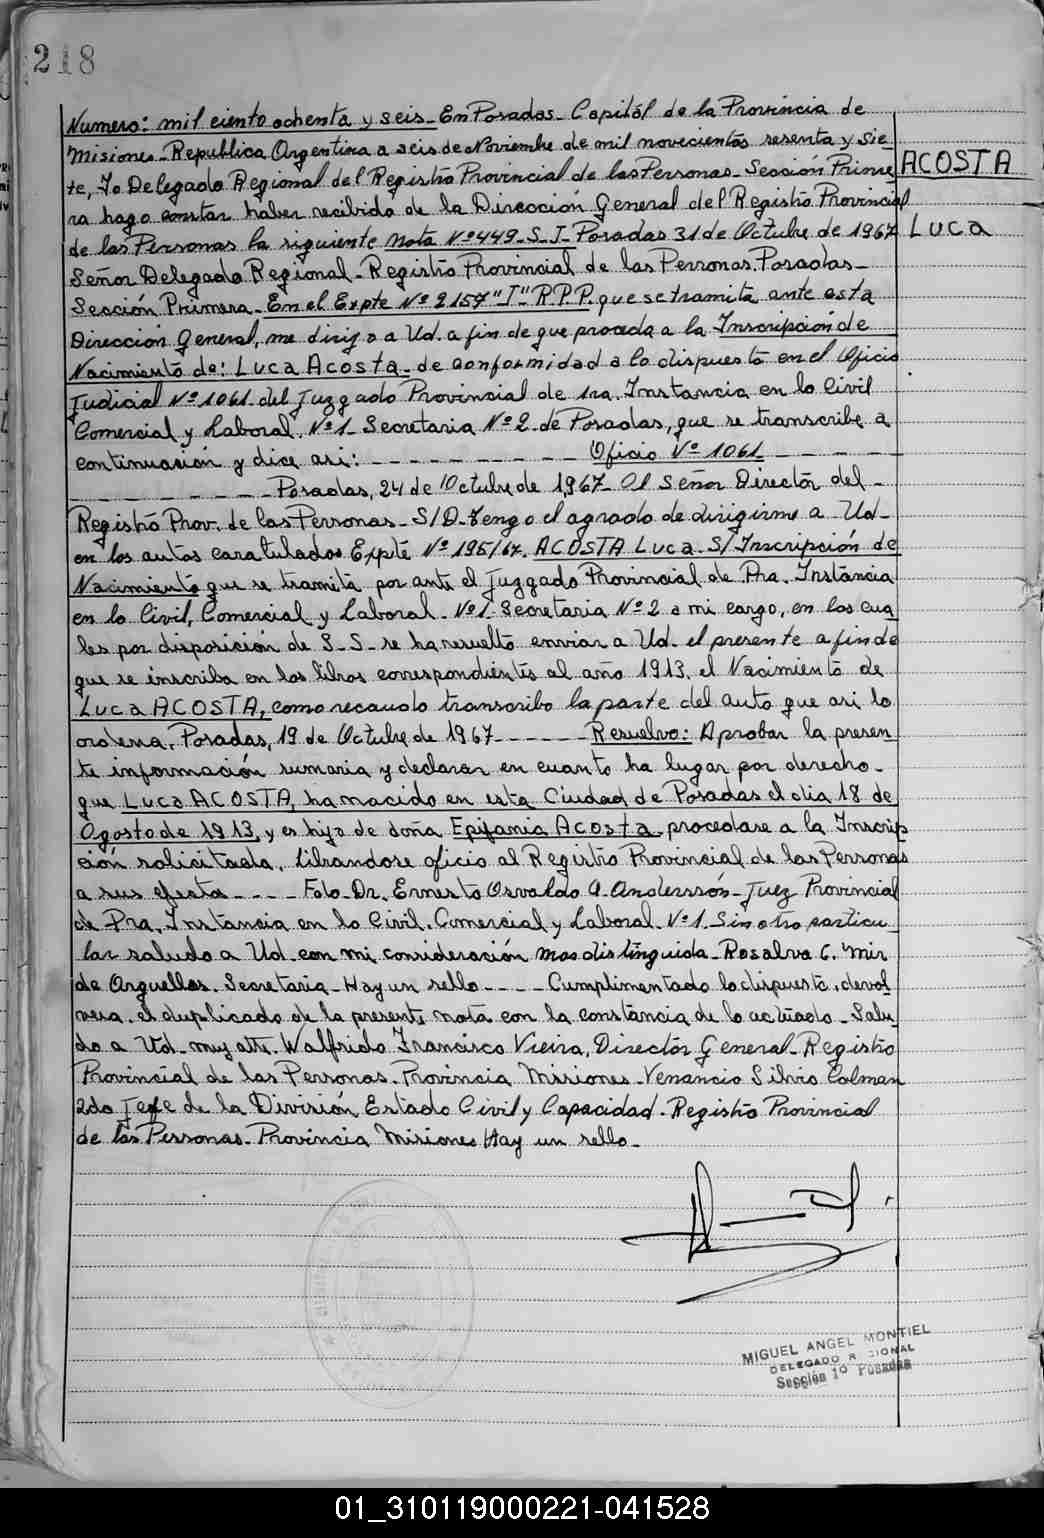 218
Numero: mil ciento ochenta y seis - En Posadas - Capitál de la Provincia de
Misiones - Republica Argentina a seis de Noviembre de mil novecientos sesenta y Sie-
te, Yo Delegado Regional del Registro Provincial de las Personas - Sección Prime
ACOSTA
ra hago constar haber recibido de la Dirección General del Registro Provincial
de las Personas la siguiente Nota Nº 449 - S. J - Posadas 31 de Octubre de 1967
Luca
Señor Delegado Regional - Registro Provincial de las Personas. Posadas -
Sección Primera - En el Expte Nº 2157 "I" R.P.P. que se tramita ante esta
Dirección General, me dirijo a Ud. a fin de que proceda a la Inscripción de
Nacimiento de: Luca Acosta - de conformidad a lo dispuesto en el Oficio
Judicial Nº 1061 del Juzgado Provincial de 1ra. Instancia en lo Civil
Comercial y Laboral. Nº 1 - Secretaria Nº 2 - de Posadas, que se transcribe a
continuación y dice asi: - - - - - - - - Oficio Nº 1061 - - - -
- - - - - - - Posadas, 24 de Octubre de 1,967 - Al Señor Directór del -
Registró Prov. de las Personas - S/D - Tengo el agrado de dirigirme a Ud -
en los autos caratulados Expte Nº 195/67. ACOSTA Luca - S/ Inscripción de
Nacimientó que se tramita por ante el Juzgado Provincial de Pra. Instancia
en lo Civil, Comercial y Laboral. Nº 1 - Secretaria Nº 2 a mi cargo, en los cua
les por disposición de S - S - se ha resuelto enviar a Ud - el presente a fin de
que se inscriba en los libros correspondientes al año 1913, el Nacimiento de
Luca ACOSTA, como recaudo transcribo la parte del auto que asi lo
ordena. Posadas, 19 de Octubre de 1967 - - - - - - Resuelvo: Aprobar la presen
te información sumaria y declarar en cuanto ha lugar por derecho -
que Luca ACOSTA, ha nacido en esta Ciudad de Posadas el dia 18 de
Agosto de 1913, y es hijo de doña Epifania Acosta procedase a la Inscrip
ción solicitada, librandose oficio al Registro Provincial de las Personas
a sus efectos - - - - Fdo. Dr. Ernesto Osvaldo A. Anderssón - Juez Provincial
de Pra. Instancia en lo Civil. Comercial y Laboral. Nº 1. Sin otro particu
lar saludo a Ud. con mi consideración mas distinguida - Rosalva C. Mir
de Arguellos. Secretaria - Hay un sello - - - - Cumplimentado lo dispuesto, devol
vera. el duplicado de la presente nota con la constancia de lo actuado - Salu-
do a Ud - muy atte. Walfrido Francisco Vieira, Directór General - Registro
Provincial de las Personas - Provincia Misiones - Venancio Silvio Colman
2do Jefe de la División Estado Civil y Capacidad - Registro Provincial
de las Personas - Provincia Misiones Hay un sello -
MIGUEL ANGEL MONTIEL
DELEGADO R IONAL
Sección 1º Posadas
01_310119000221-041528